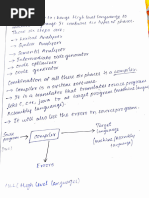 to change High level language to
language. It contains six types of phases.
There are six steps are,
→ Lexical Analyzer
→ Syntax Analyzer
→ Semantic Analyzer
→ Intermediate code generator
→ Code optimizer
→ Code generator
Combination of all these six phases is a compiler.
→ Compiler is a system software
→ It is a translator that translates source program
Assembly language).
→ It will also show the errors in source program.
Source program
compiler
Target language
(machine/Assembly language)
Errors
High level language